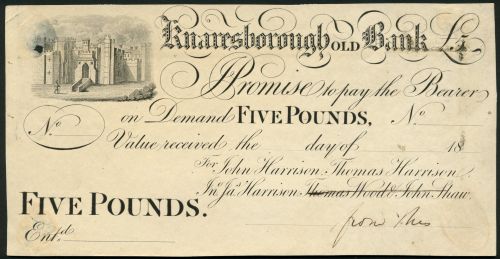 Knaresborough OLD Bank £5
I Promise to pay the Bearer
No on Demand FIVE POUNDS, No
Value received the day of 18
For John Harrison, Thomas Harrison,
Jno. Jas. Harrison, Thomas Wood & John Shaw.
FIVE POUNDS.
from this
Entd.